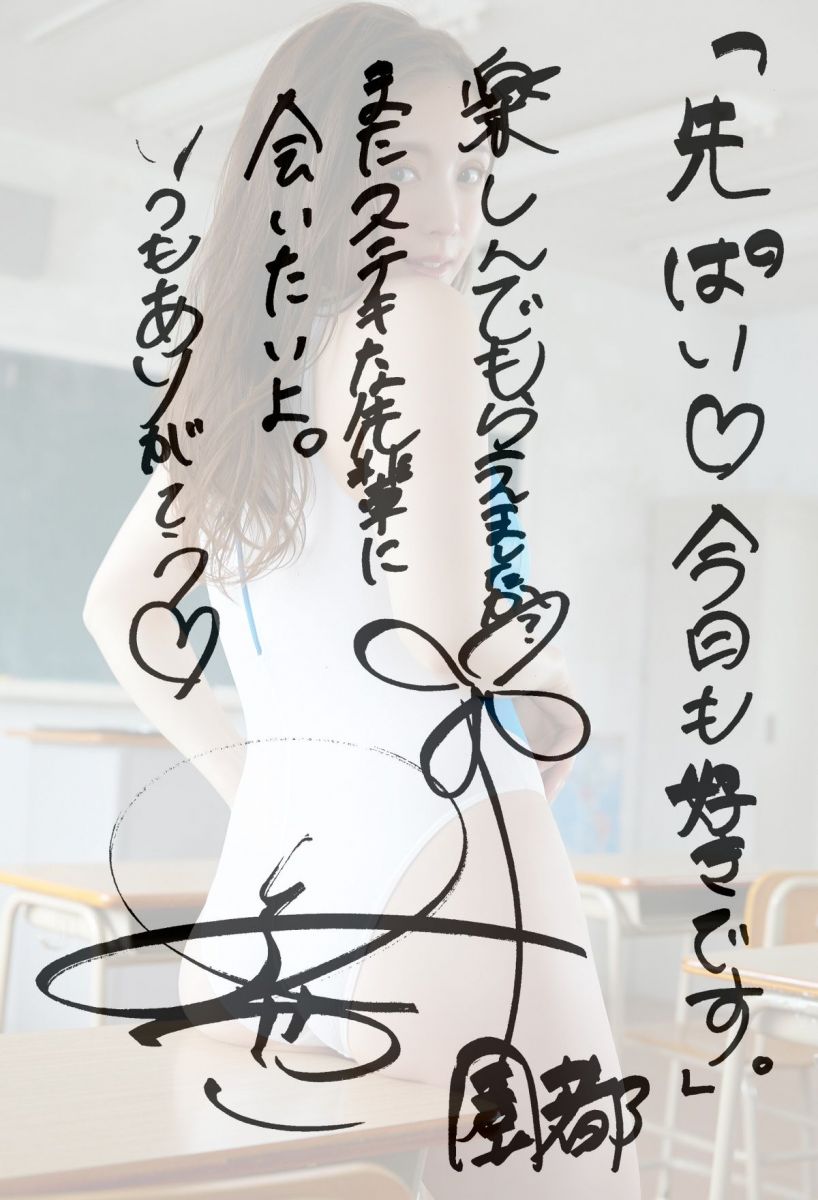 「先ぱい♡今日も好きです。」
楽しんでもらえましたか?
またステキな先輩に
会いたいよ。
いつもありがとう♡
園都